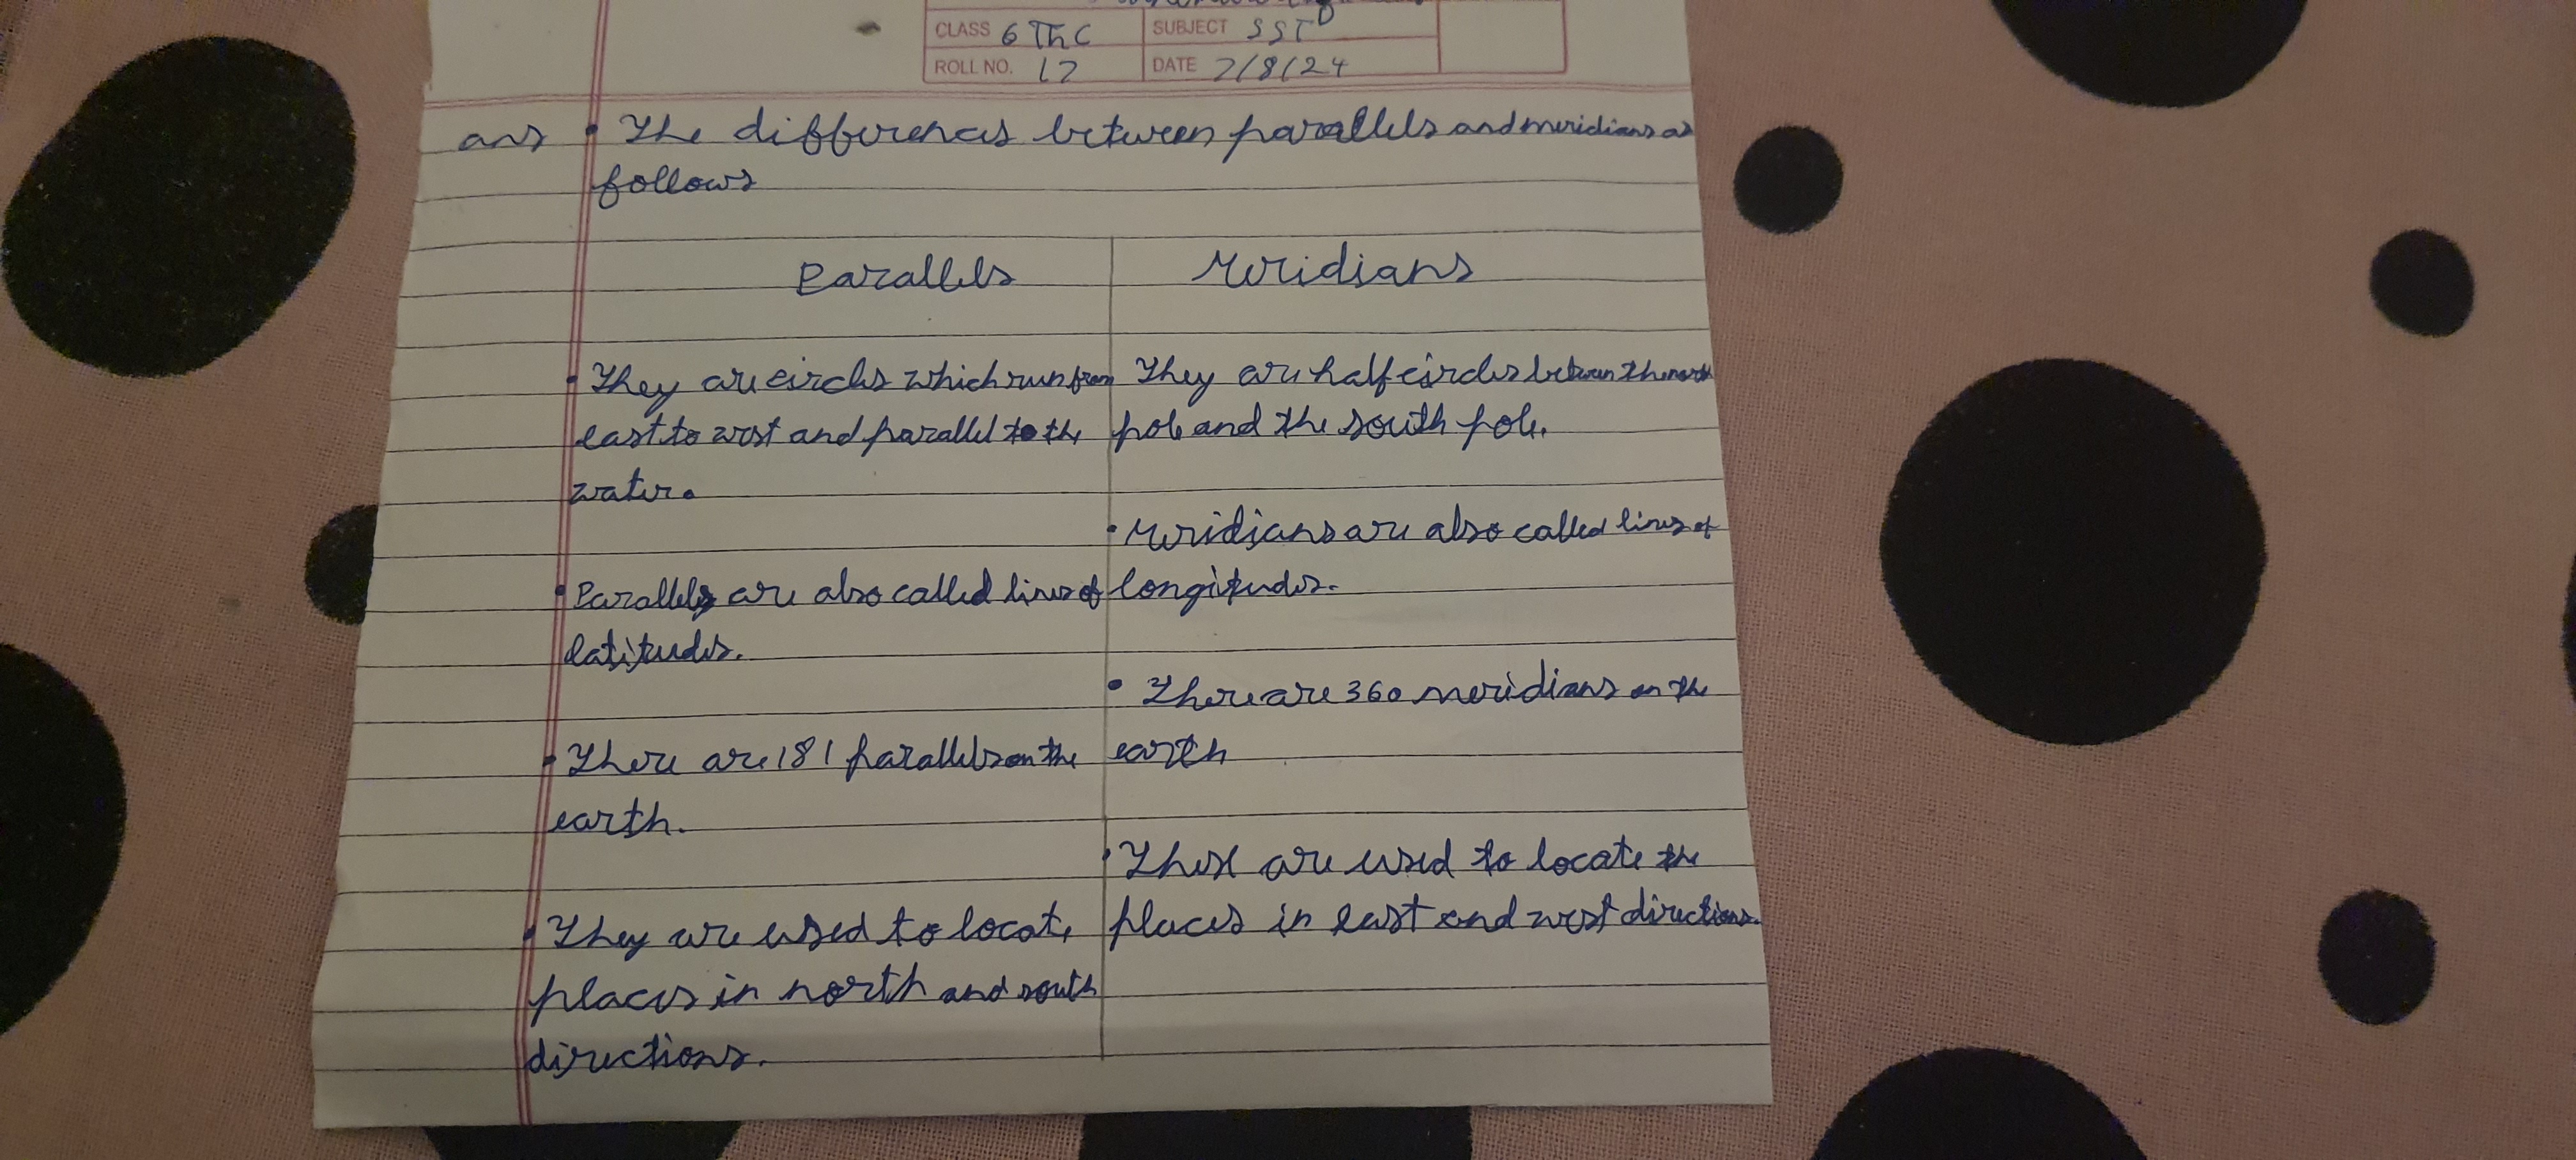 CLASS 6 Th C SUBJECT SST
ROLL NO. 17 DATE 7/8/24
ans • The differences between parallels and meridians as
follows
Parallels
• They are circles which run from
east to west and parallel to the
water.
• Parallels are also called lines of
latitudes.
• There are 181 parallels on the
earth.
• They are used to locate
places in north and south
directions.
Meridians
They are half circles between the north
pole and the south pole.
• Meridians are also called lines of
longitudes.
• There are 360 meridians on the
earth
• These are used to locate the
places in east and west directions.